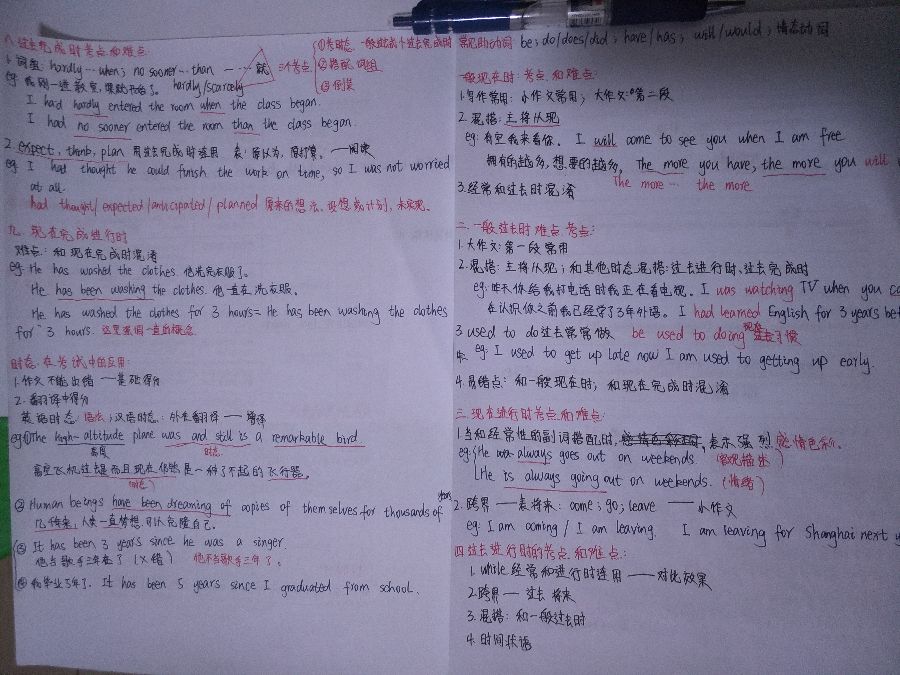 八.过去完成时考点和难点:
1.词组: hardly…when; no sooner…than 一…就
3个考点
①考时态 一般过去式个过去完成时
②搭配 词组
③倒装
eg: 我刚一进教室,课就开始了。 hardly/scarcely
I had hardly entered the room when the class began.
I had no sooner entered the room than the class began.
2. expect, think, plan 用过去完成时连用 表:原以为,原打算。
eg I had thought he could finish the work on time, so I was not worried
at all.
had thought/expected/anticipated/planned 原来的想法、设想或计划,未实现。
九、现在完成进行时
难点: 和现在完成时混淆
eg: He has washed the clothes. 他洗完衣服了。
He has been washing the clothes. 他一直在洗衣服。
He has washed the clothes for 3 hours = He has been washing the clothes
for 3 hours. 这里强调一直的概念
时态,在考试中的应用:
1.作文不能出错——基础得分
2.翻译中得分
英语时态:语法;汉语时态:外来翻译——增译
eg:①The high-altitude plane was and still is a remarkable bird
高度 时态
高空飞机过去是而且现在依然是一种了不起的飞行器。
②Human beings have been dreaming of copies of themselves for thousands of years
几千年来,人类一直梦想可以克隆自己。
③ It has been 3 years since he was a singer.
他当歌手三年了 (X错) 他不当歌手三年了。
④我毕业5年了. It has been 5 years since I graduated from school.
常见助动词 be; do/does/did; have/has; will/would; 情态动词
一般现在时: 考点和难点:
1.写作常用: 小作文常用; 大作文:第二段
2.混搭: 主将从现
eg:有空我来看你. I will come to see you when I am free
拥有的越多,想要的越多, The more you have, the more you will
The more… the more
3.经常和过去时混淆
二.一般过去时难点.考点:
1.大作文:第一段常用
2.混搭: 主将从现; 和其他时态混搭:过去进行时、过去完成时
eg:昨天你给我打电话时我正在看电视. I was watching TV when you
在认识你之前我已经学了3年外语. I had learned English for 3 years
3 used to do过去常常做 be used to doing 现在习惯
eg: I used to get up late now I am used to getting up early.
4.易错点: 和一般现在时; 和现在完成时混淆
三.现在进行时考点和难点:
1.当和经常性的副词搭配时, 表示强烈感情色彩.
eg: He always goes out on weekends. (客观描述)
He is always going out on weekends. (情绪)
2.跨界——表将来: come; go; leave ——小作文
eg: I am coming / I am leaving. I am leaving for Shanghai next
四过去进行时的考点和难点:
1. while经常和进行时连用——对比效果
2.跨界——过去将来
3.混搭: 和一般过去时
4.时间状语